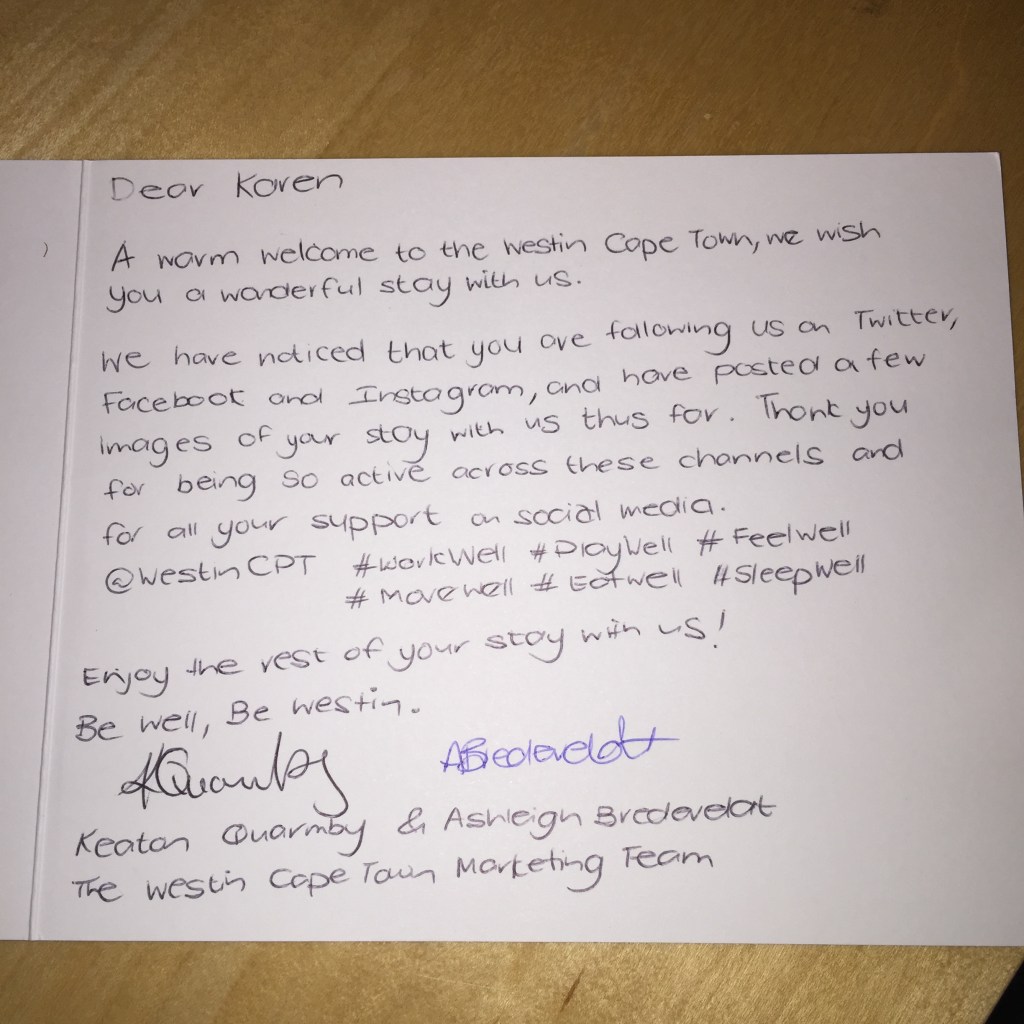 Dear Karen
A warm welcome to the Westin Cape Town, we wish
you a wonderful stay with us.
We have noticed that you are following us on Twitter,
Facebook and Instagram, and have posted a few
images of your stay with us thus far. Thank you
for being so active across these channels and
for all your support on social media.
@WestinCPT #WorkWell #PlayWell #FeelWell
#MoveWell #EatWell #SleepWell
Enjoy the rest of your stay with us!
Be well, Be Westin.
KQuarmby ABredeveldt
Keaton Quarmby & Ashleigh Bredeveldt
The Westin Cape Town Marketing Team